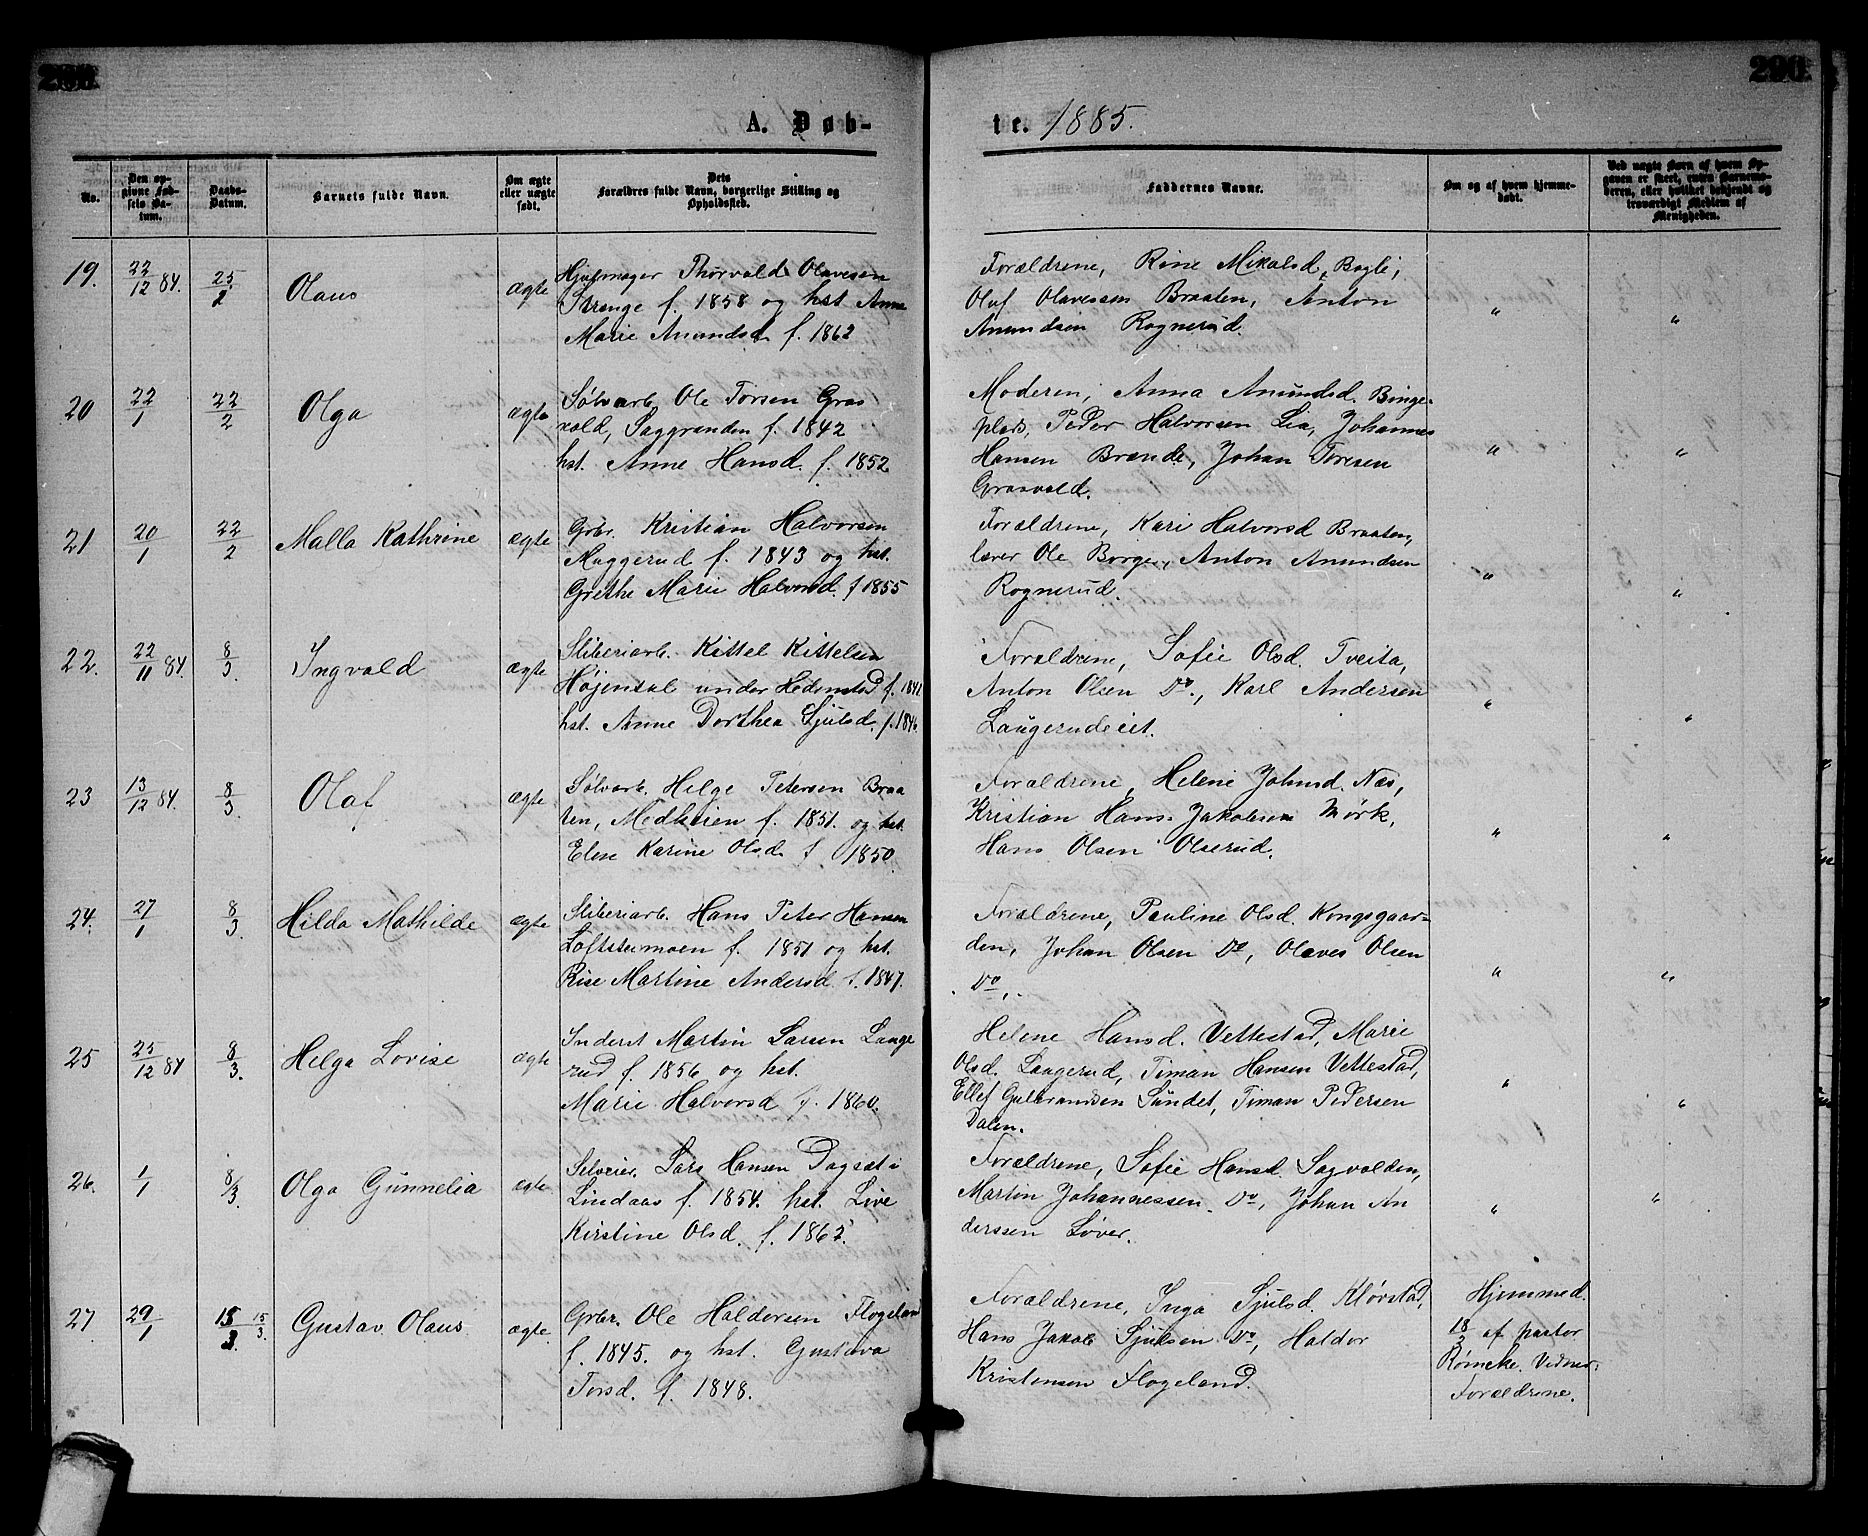 290.
A. Døb-
te. 1885.
No.
Den opgivne Fødsels Datum.
Daabs-Datum.
Barnets fulde Navn.
Om ægte eller uægte født.
Dets Forældres fulde Navn, borgerlige Stilling og Opholdssted.
Faddernes Navne.
Om og af hvem hjemmedøbt.
Ved uægte Børn af hvem Opgaven er skeet, enten Barnemoderen, eller hvilket bekjendt og troværdigt Medlem af Menigheden.
19. 22/12 84. 25/2 Olaus ægte
Hjulmager Thorvald Olavesen
f. 1858 og hst. Anne
Marie Amundsd. f. 1862
Forældrene, Rine Mikalsd. Bøgli,
Olaf Olavessen Braaten, Anton
Amundsen Rognerud.
" "
20 22/1 22/2 Olga ægte
Sølvarb. Ole Torsen Gras
vold, Saggrenden f. 1842
hst. Anne Hansd. f. 1852
Moderen, Anna Amundsd. Binge-
plads, Peder Halvorsen Lia, Johannes
Hansen Brænde, Johan Toresen
Grosvold.
" "
21 20/1 22/2 Malla Kathrine ægte
Grbr. Kristian Halvorsen
Muggerud f. 1843 og hst.
Grethe Marie Halvorsd. f 1855
Forældrene, Kari Halvorsd Braaten,
lærer Ole Borge, Anton Amundsen
Rognerud.
" "
22. 22/11 84. 8/3. Ingvald ægte
Sliberiarb. Kittel Kittelsen
Højensal under Hedenstad f. 1841
hst. Anne Dorthea Sjulsd. f. 1846.
Forældrene, Sofie Olsd. Tveita,
Anton Olsen Do., Karl Andersen
Laugerudeiet.
" "
23 13/12 84. 8/3. Olaf ægte
Sølvarb. Helge Petersen Braa
ten, Medheien f. 1851. og hst.
Elen Karine Olsd f. 1850.
Forældrene, Helene Johnsd. Næs,
Kristian Hans. Jakobsen Mørk,
Hans Olsen Olserud.
" "
24. 27/1 8/3. Hilda Mathilde ægte
Sliberiarb. Hans Peter Hansen
Loftstumoen f. 1851 og hst.
Rise Martine Andersd f. 1847.
Forældrene, Pauline Olsd. Kongsgaar-
den, Johan Olsen Do, Olaves Olsen
Do.
" "
25 25/12 84 8/3. Helga Lovise ægte
Inderst Martin Larsen Lange
rud f. 1856 og hst.
Marie Halvorsd f. 1860.
Helene Hansd. Vettestad, Marie
Olsd. Laugerud, Timan Hansen Vettestad,
Ellef Gulbrandsen Sundet, Timan Pedersen
Dalen.
" "
26. 1/1 8/3. Olga Gunnelia ægte
Selveier. Lars Hansen Dagsæt i
Lindaas f. 1854. hst. Live
Kirstine Olsd. f. 1862.
Forældrene, Sofie Hansd Sagvolden,
Martin Johannessen Do, Johan An
derssen Løver.
" "
27. 29/1 15/3 15/3. Gustav Olaus. ægte.
Grbr. Ole Haldorsen Flogeland
f. 1845. og hst. Gustava
Torsd. f. 1848.
Forældrene, Inga Sjulsd. Kløvstad,
Hans Jakob Sjulsen Do, Haldor
Kristensen Flogeland.
Hjemmed.
18/2 af pastor
Rømcke. Vidner:
Forældrene.